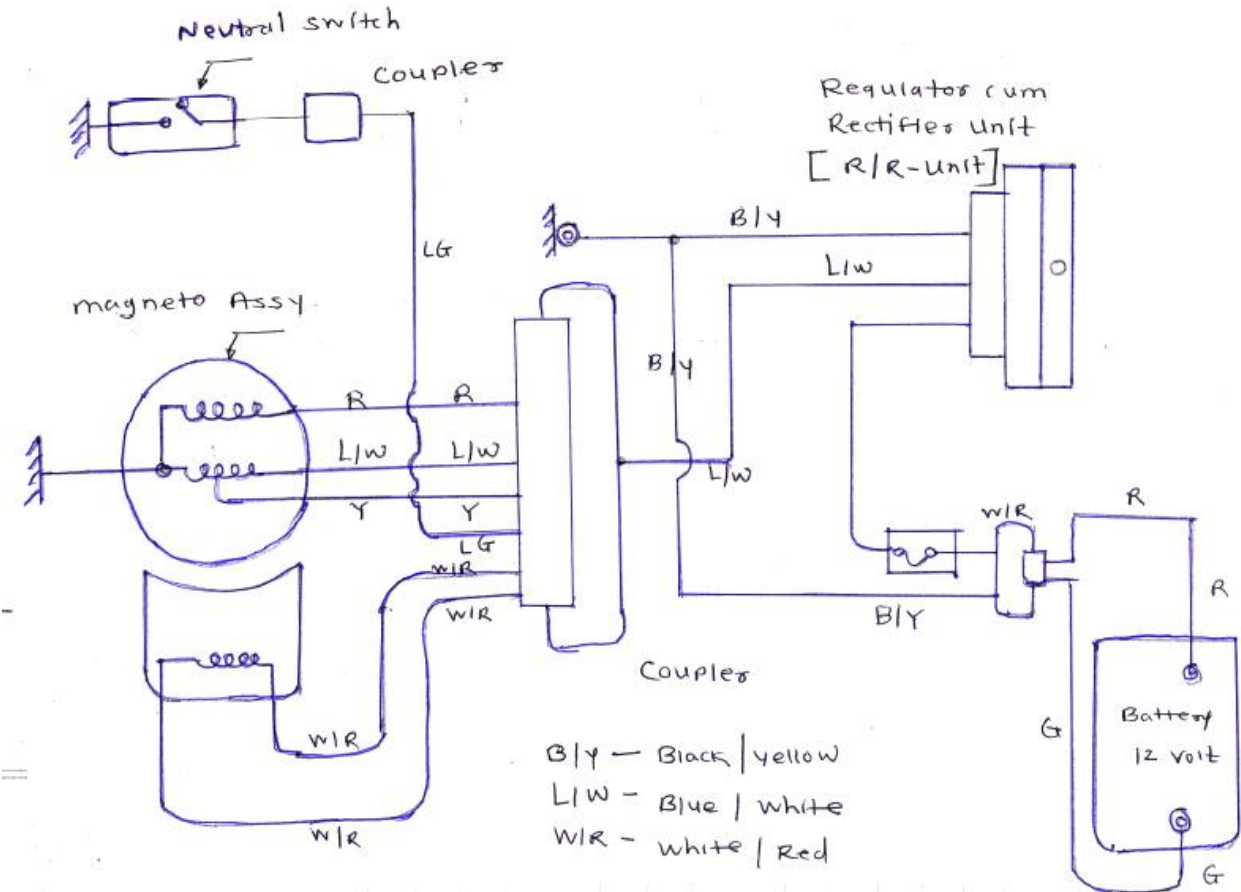 Neutral switch
Coupler
Regulator cum
Rectifier unit
[ R/R-Unit]
B/Y
L/W
LG
magneto Assy.
B/Y
R
R
L/W
L/W
L/W
Y
Y
LG
W/R
W/R
W/R
R
R
B/Y
Coupler
W/R
W/R
G
Battery
12 volt
G
B/Y - Black/yellow
L/W - Blue/white
W/R - white/Red